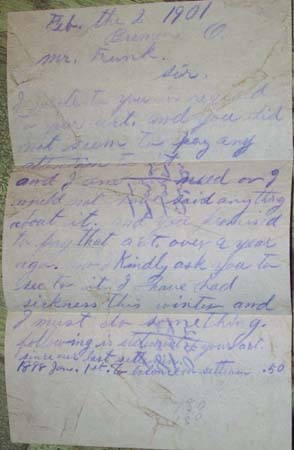 Feb. the 2 1901
Bremen O.
Mr. Funk.
Sir.
I wrote to you in regard
your act. and you did
not seem to pay any
attention to it
and I am need or I
would not have said anything
about it. and you promised
to pay that act. over a year
ago. Kindly ask you to
see to it. I have had
sickness this winter and
I must do something.
following is statement of your act.
since our last settl
1888 Jan. 1st To balance on settlem .50